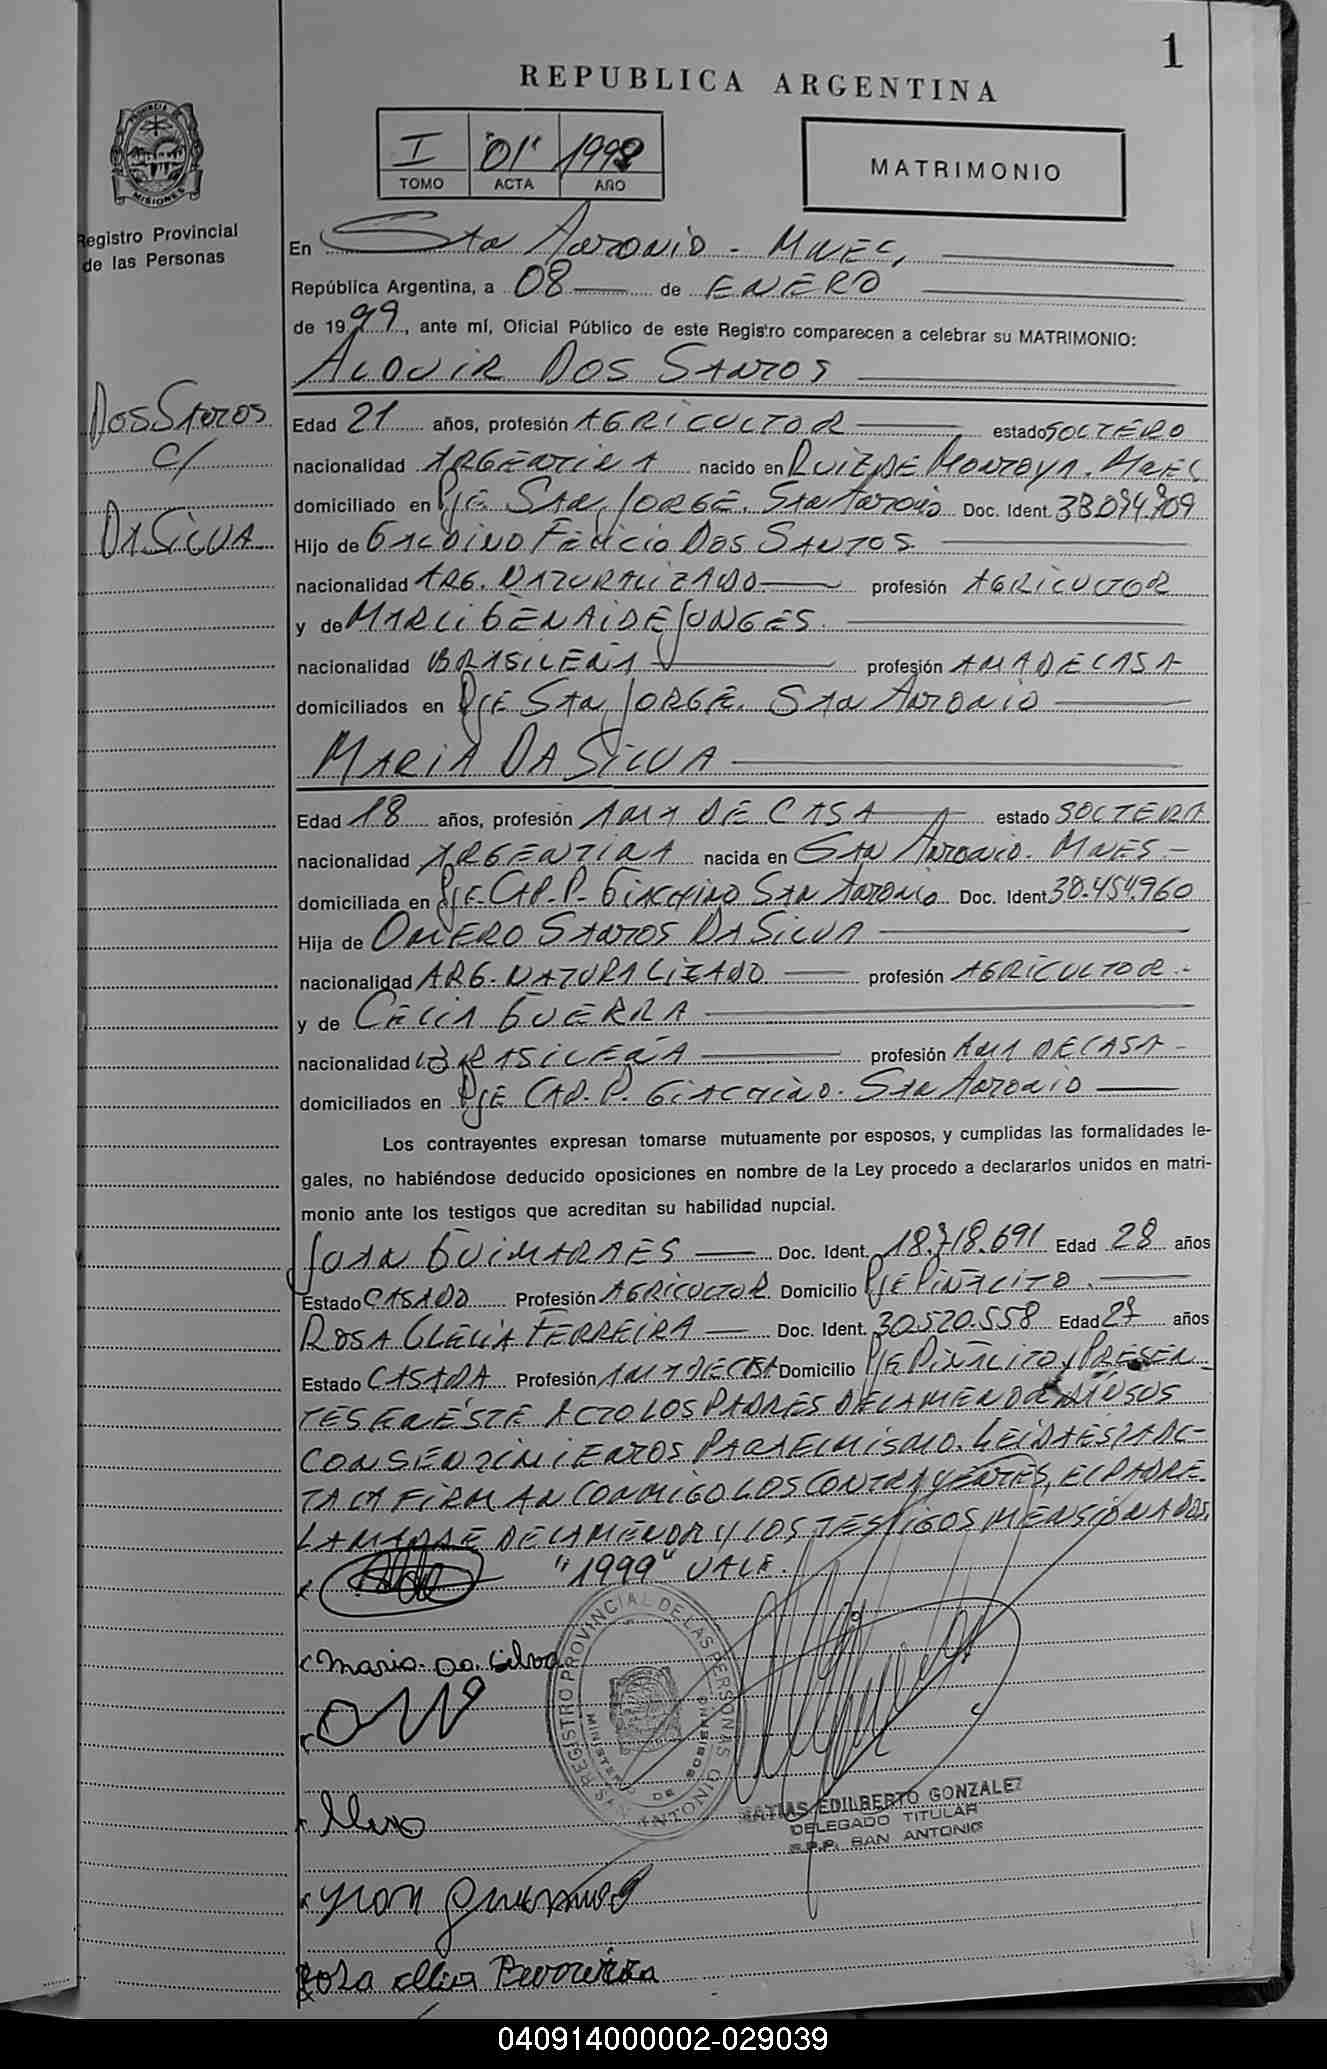 1
REPUBLICA ARGENTINA
PROVINCIA DE MISIONES
Registro Provincial
de las Personas
I "01" 1999
TOMO ACTA AÑO
MATRIMONIO
En Sta Antonio - Mnes,
República Argentina, a 08 de ENERO
de 1999, ante mí, Oficial Público de este Registro comparecen a celebrar su MATRIMONIO:
ALOUIR DOS SANTOS
Dos Santos
c/
Da Silva
Edad 21 años, profesión AGRICULTOR estado SOLTERO
nacionalidad ARGENTINA nacido en RUIZ DE MONTOYA. Mnes
domiciliado en Pje SAN JORGE. San Antonio Doc. Ident.
Hijo de GALDINO FELICIO DOS SANTOS
nacionalidad ARG. NATURALIZADO profesión AGRICULTOR
y de MARLI GENAIDE JUNGES.
nacionalidad BRASILEÑA profesión AMA DE CASA
domiciliados en Pje SAN JORGE. SAN ANTONIO
MARIA DA SILVA
Edad 18 años, profesión AMA DE CASA estado SOLTERA
nacionalidad ARGENTINA nacida en SAN ANTONIO. MNES -
domiciliada en Pje. CAP. P. GIACHINO SAN ANTONIO Doc. Ident 30.454.960
Hija de OMERO SANTOS DA SILVA
nacionalidad ARG. NATURALIZADO profesión AGRICULTOR -
y de CELIA GUERRA
nacionalidad BRASILEÑA profesión AMA DE CASA -
domiciliados en PJE CAP. P. GIACHINO. SAN ANTONIO
Los contrayentes expresan tomarse mutuamente por esposos, y cumplidas las formalidades le-
gales, no habiéndose deducido oposiciones en nombre de la Ley procedo a declararlos unidos en matri-
monio ante los testigos que acreditan su habilidad nupcial.
JUAN GUIMARAES Doc. Ident. 18.718.691 Edad 28 años
Estado CASADO Profesión AGRICULTOR Domicilio PJE PIÑALITO.
ROSA CLELIA FERREIRA Doc. Ident. 30.520.558 Edad 27 años
Estado CASADA Profesión AMA DE CASA Domicilio PJE PIÑALITO, PRESEN-
TES EN ÉSTE ACTO LOS PADRES DE LA MENOR SUS
CONSENTIMIENTOS PARA EL MISMO. LEIDA ESTA AC-
TA LA FIRMAN CONMIGO LOS CONTRAYENTES, EL PADRE
LA MADRE DE LA MENOR Y LOS TESTIGOS MENSIONADOS,
"1999" VALE.
Maria Da Silva
REGISTRO PROVINCIAL DE LAS PERSONAS
MINISTERIO DE GOBIERNO
SAN ANTONIO
MATIAS EDILBERTO GONZALEZ
DELEGADO TITULAR
R.P.P. SAN ANTONIO
Rosa Clelia Ferreira
040914000002-029039